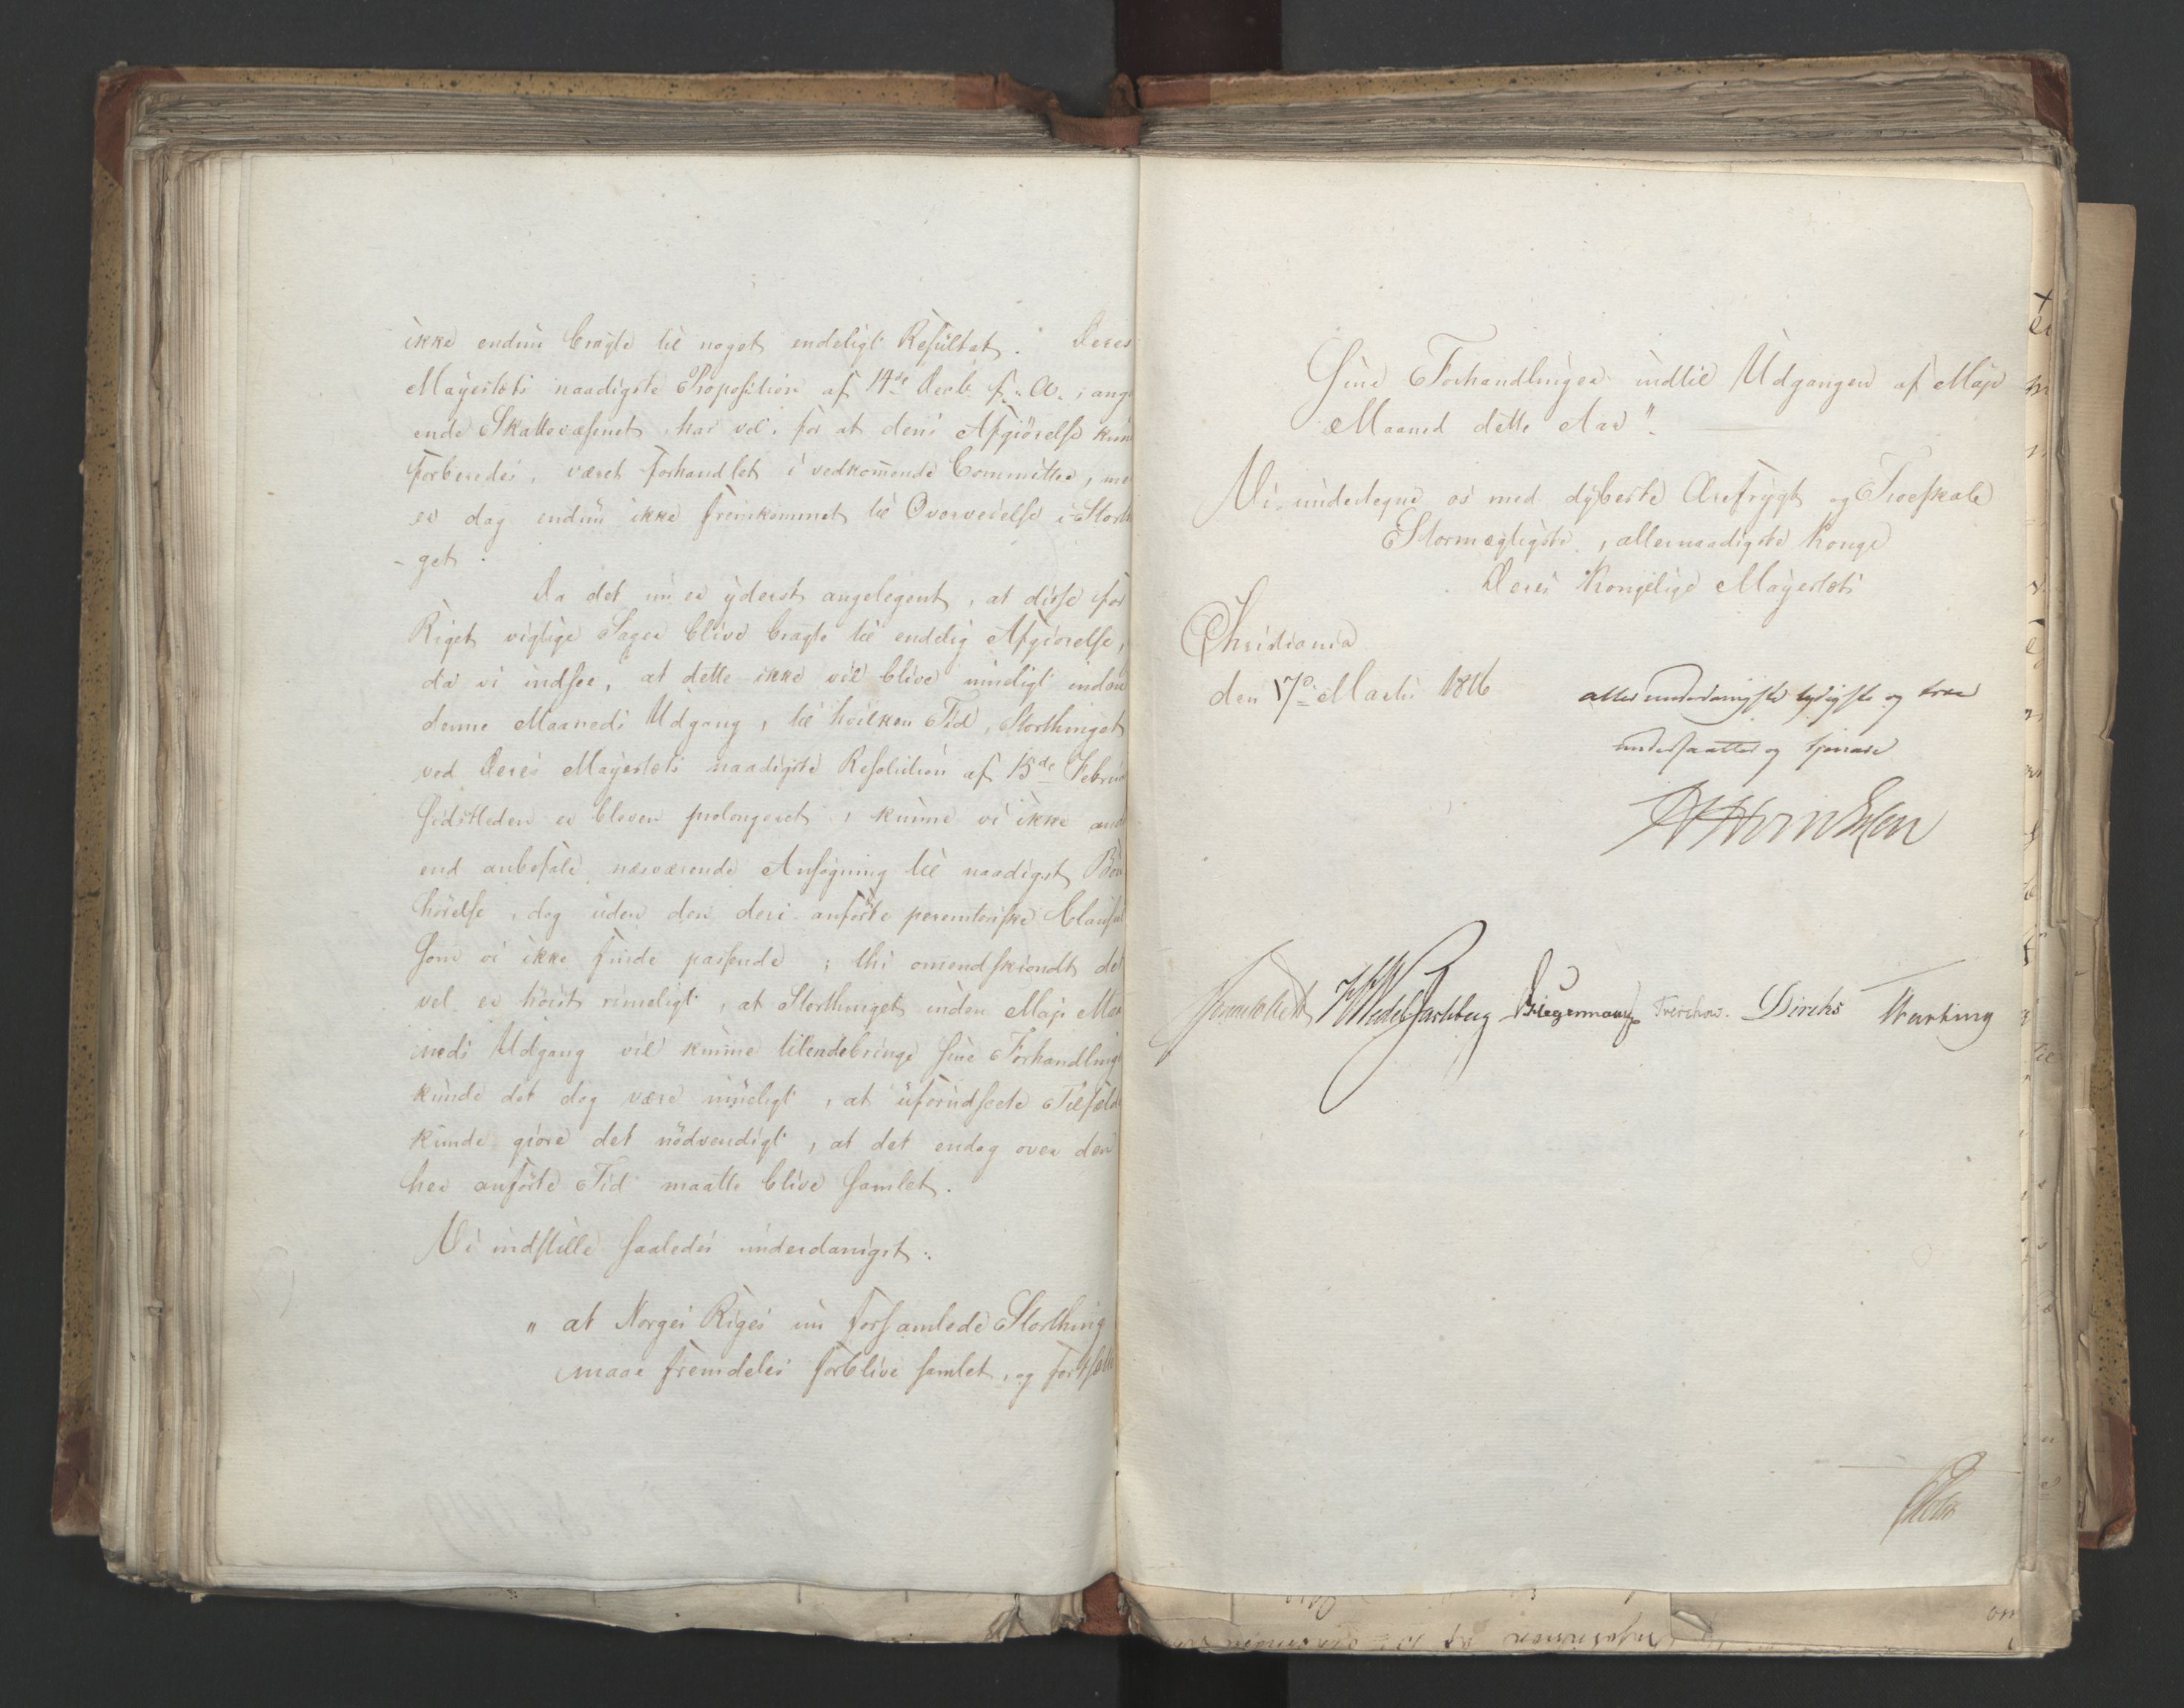 ikke endnu bragte til noget endeligt Resultat. Deres
Mayestæts naadigste Proposition af 14de Decb. f. A., ang
ende Skattevæsenet har vel, for at dens Afgiörelse kun
forberedes, været forhandlet i vedkommende Committee, me
er dog endnu ikke fremkommet til Overveielse i Storth
get.
Da det nu er yderst angelegent, at disse for
Riget vigtige Sager blive bragte til endelig Afgiörelse,
da vi indsee, at dette ikke vil blive mueligt inden
denne Maaneds Udgang, til hvilken Tid, Storthinget
ved Deres Mayestæts naadigste Resolution af 15de Februa
sidstleden er bleven prolongeret, kunne vi ikke and
end anbefale nærværende Ansøgning til naadigst Bön
hörelse, dog uden den deri anförte peremtoriske Clausul
som vi ikke finde passende; thi omendskiöndt det
vel er höist rimeligt, at Storthinget inden Maji Maa
neds Udgang vil kunne tilendebringe sine Forhandlinge
kunde det dog være mueligt, at uforudseete Tilfælde
kunde giöre det nödvendigt, at det endog over den
her anförte Tid maatte blive samlet.
Vi indstille saaledes underdanigst:
" at Norges Riges nu forsamlede Storthing
maae fremdeles forblive samlet, og fortsætte
Sine Forhandlinger indtil Udgangen af Maji
Maaned dette Aar".
Vi underlegne os med dybeste Ærefrygt og Troeskab
Stormægtigste, allernaadigste Konge
Deres Kongelige Mayestæts
Christiania
den 17de Martii 1816
allerunderdanigste lydigste og troe
undersaatter og tjenere
Hegermann Treschow. Diriks Motzfeldt